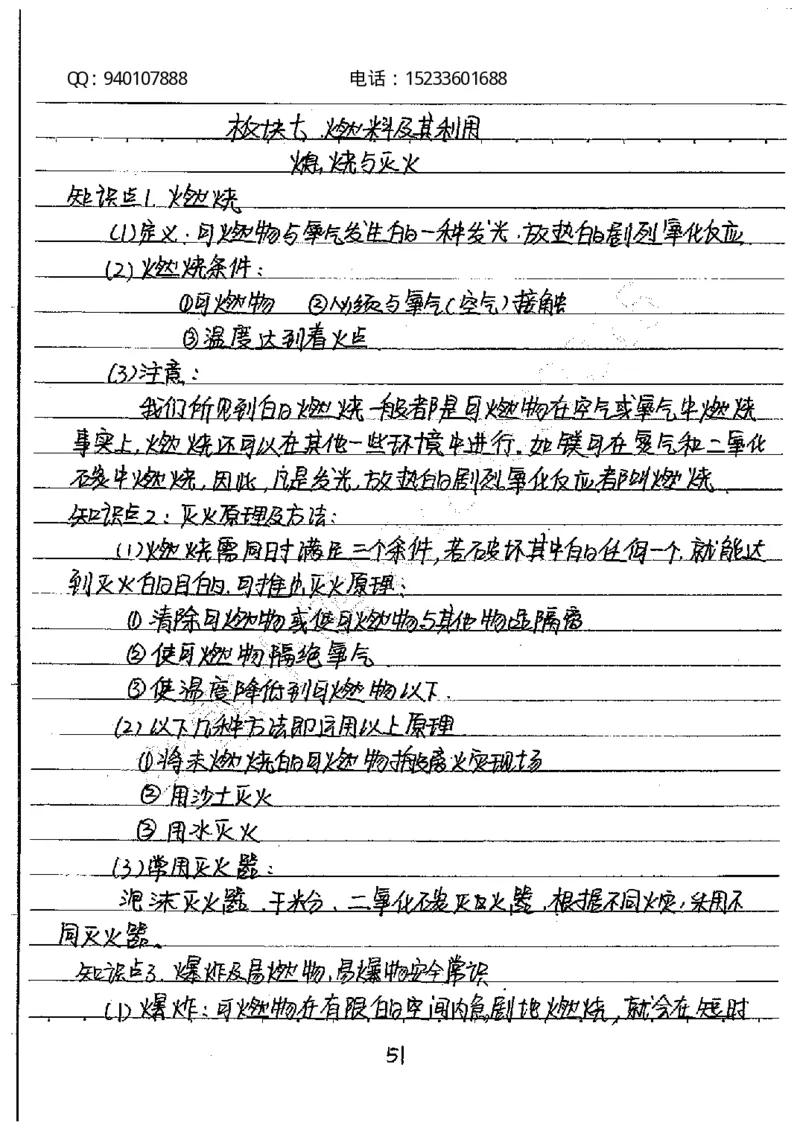 QQ：940107888 电话：15233601688
板块七 燃料及其利用
燃烧与灭火
知识点1. 燃烧
(1)定义.可燃物与氧气发生的一种发光.放热的剧烈氧化反应
(2)燃烧条件：
①可燃物 ②必须与氧气(空气)接触
③温度达到着火点
(3)注意：
我们所见到的燃烧一般都是可燃物在空气或氧气中燃烧
事实上,燃烧还可以在其他一些环境中进行.如镁可在氮气和二氧化
碳中燃烧,因此,凡是发光,放热的剧烈氧化反应都叫燃烧
知识点2：灭火原理及方法：
(1)燃烧需同时满足三个条件,若破坏其中的任何一个.就能达
到灭火的目的.可推出灭火原理：
①清除可燃物或使可燃物与其他物品隔离
②使可燃物隔绝氧气
③使温度降低到可燃物以下.
(2)以下几种方法即运用以上原理
①将未燃烧的可燃物撤离火灾现场
②用沙土灭火
③用水灭火
(3)常用灭火器：
泡沫灭火器、干粉、二氧化碳灭火器,根据不同火灾,采用不
同灭火器。
知识点3.爆炸及易燃物,易爆物安全常识
(1)爆炸：可燃物在有限的空间内急剧地燃烧,就会在短时
51